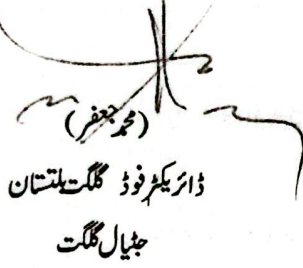 (محمد جعفر)
ڈائریکٹر فوڈ گلگت بلتستان
جٹیال گلگت